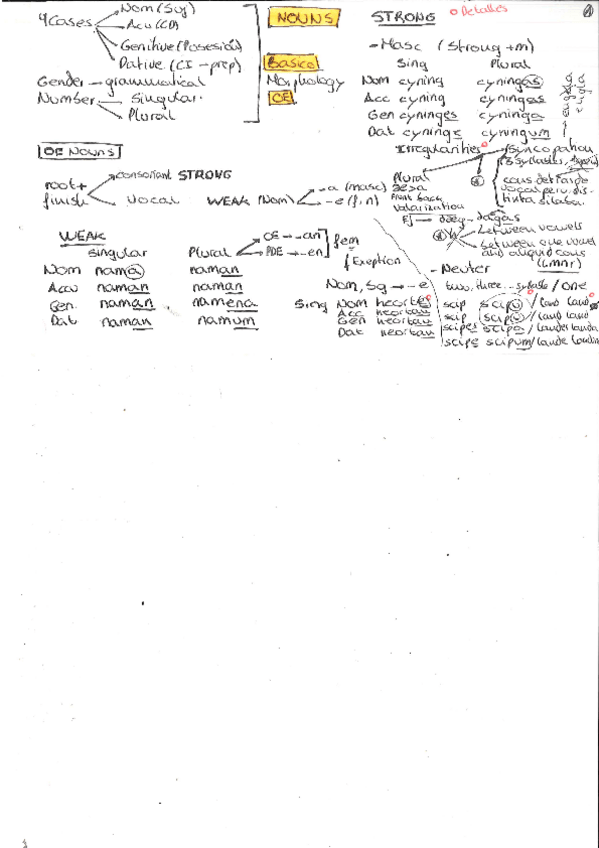 4 Cases
Nom (Suj)
Acu (CD)
Genitive (Posesión)
Dative (CI - prep)
Gender - grammatical
Number
Singular
Plural
NOUNS
Basico
Morphology
OE
OE Nouns
root +
finish
consonant STRONG
vocal WEAK (Nom)
-a (masc)
-e (f, n)
WEAK
Singular Plural
OE → -an
PDE → -en
fem
Nom naman naman
Acu naman naman
Gen. naman namena
Dat naman namum
STRONG
Detalles
- Masc (Strong + m)
Sing Plural
Nom cyning cyningas
Acc cyning cyningas
Gen cyninges cyninga
Dat cyninge cyningum
Irregularities
Syncopation
Plural
front back
Velarization
dæg - dagas
between vowels
between one vowel
and a liquid cons
(l m n r)
- Neuter
Nom, Sg → -e
two, three... syllable / one
Sing Nom heorte
Acc heortan
Gen heortan
Dat heortan
scip scipu / land land
scip scipu / land land
scipes scipa / landes landa
scipe scipum / lande